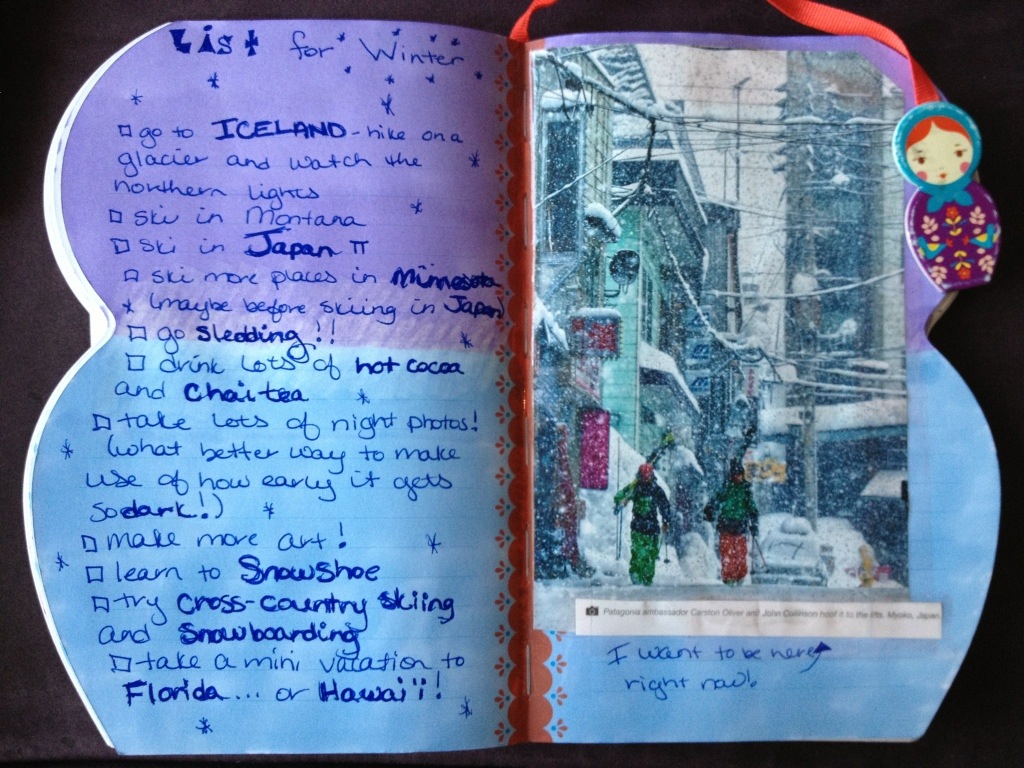 List for Winter
go to ICELAND - hike on a
glacier and watch the
northern lights
ski in Montana
ski in Japan
ski more places in Minnesota
* (maybe before skiing in Japan)
go sledding!!
drink lots of hot cocoa
and Chai tea
take lots of night photos!
(what better way to make
use of how early it gets
so dark!)
make more art!
learn to Snowshoe
try cross-country skiing
and Snowboarding
take a mini vacation to
Florida... or Hawai'i!
Patagonia ambassador Carston Oliver and John Collinson hoof it to the lifts. Myoko, Japan
I want to be here
right now!